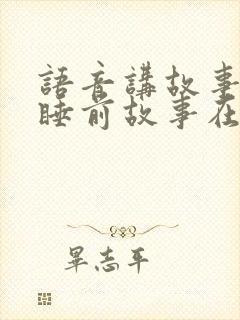 語音講故事
睡前故事在
畢志平